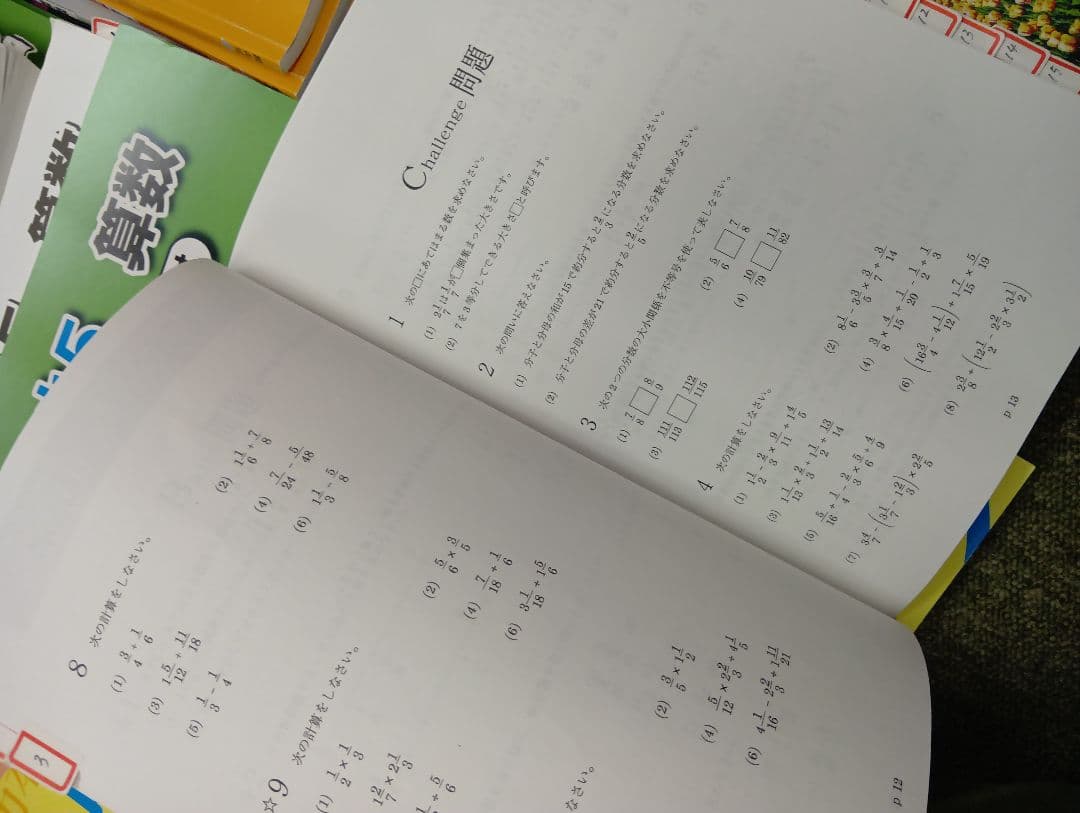 8 次の計算をしなさい。
(1) 3/4 + 1/6
(2) 1 1/6 + 7/8
(3) 1 5/12 + 11/18
(4) 7/24 - 5/48
(5) 1/3 - 1/4
(6) 1 1/3 - 5/8
☆9 次の計算をしなさい。
(1) 1/2 × 1/3
(2) 5/6 × 3/5
1 2/7 × 2 1/3
(4) 7/18 + 1/6
+ 5/6
(6) 3 1/18 + 1 5/6
なさい。
(2) 3/5 × 1 1/2
(4) 5/12 × 2 2/3 + 4 1/5
(6) 4 1/16 - 2 2/3 + 1 11/21
p 12
Challenge 問題
1 次の□にあてはまる数を求めなさい。
(1) 2 1/7 は 1/7 が□個集まった大きさです。
(2) 7を3等分してできる大きさ□と呼びます。
2 次の問いに答えなさい。
(1) 分子と分母の和が15で約分すると 2/3 になる分数を求めなさい。
(2) 分子と分母の差が21で約分すると 2/5 になる分数を求めなさい。
3 次の2つの分数の大小関係を不等号を使って表しなさい。
(1) 7/8 □ 8/9
(2) 5/6 □ 7/8
(3) 111/113 □ 112/115
(4) 10/79 □ 11/82
4 次の計算をしなさい。
(1) 1 1/2 - 2/3 × 9/11 + 1 4/5
(2) 8 1/6 - 3 3/5 × 3/7 + 3/14
(3) 1 1/13 × 2/3 + 1 1/2 + 13/14
(4) 3/8 × 4/15 + 1/20 - 1/2 + 1/3
(5) 5/16 + 1/4 - 2/3 × 5/6 + 4/9
(6) (16 3/4 - 4 1/12) + 1 7/15 × 5/19
(7) 3 4/7 - (3 1/7 - 1 2/3) × 2 2/5
(8) 2 3/8 + (12 1/2 - 2 2/3 × 3 1/2)
p 13
算数
5
3
12
13
14
15